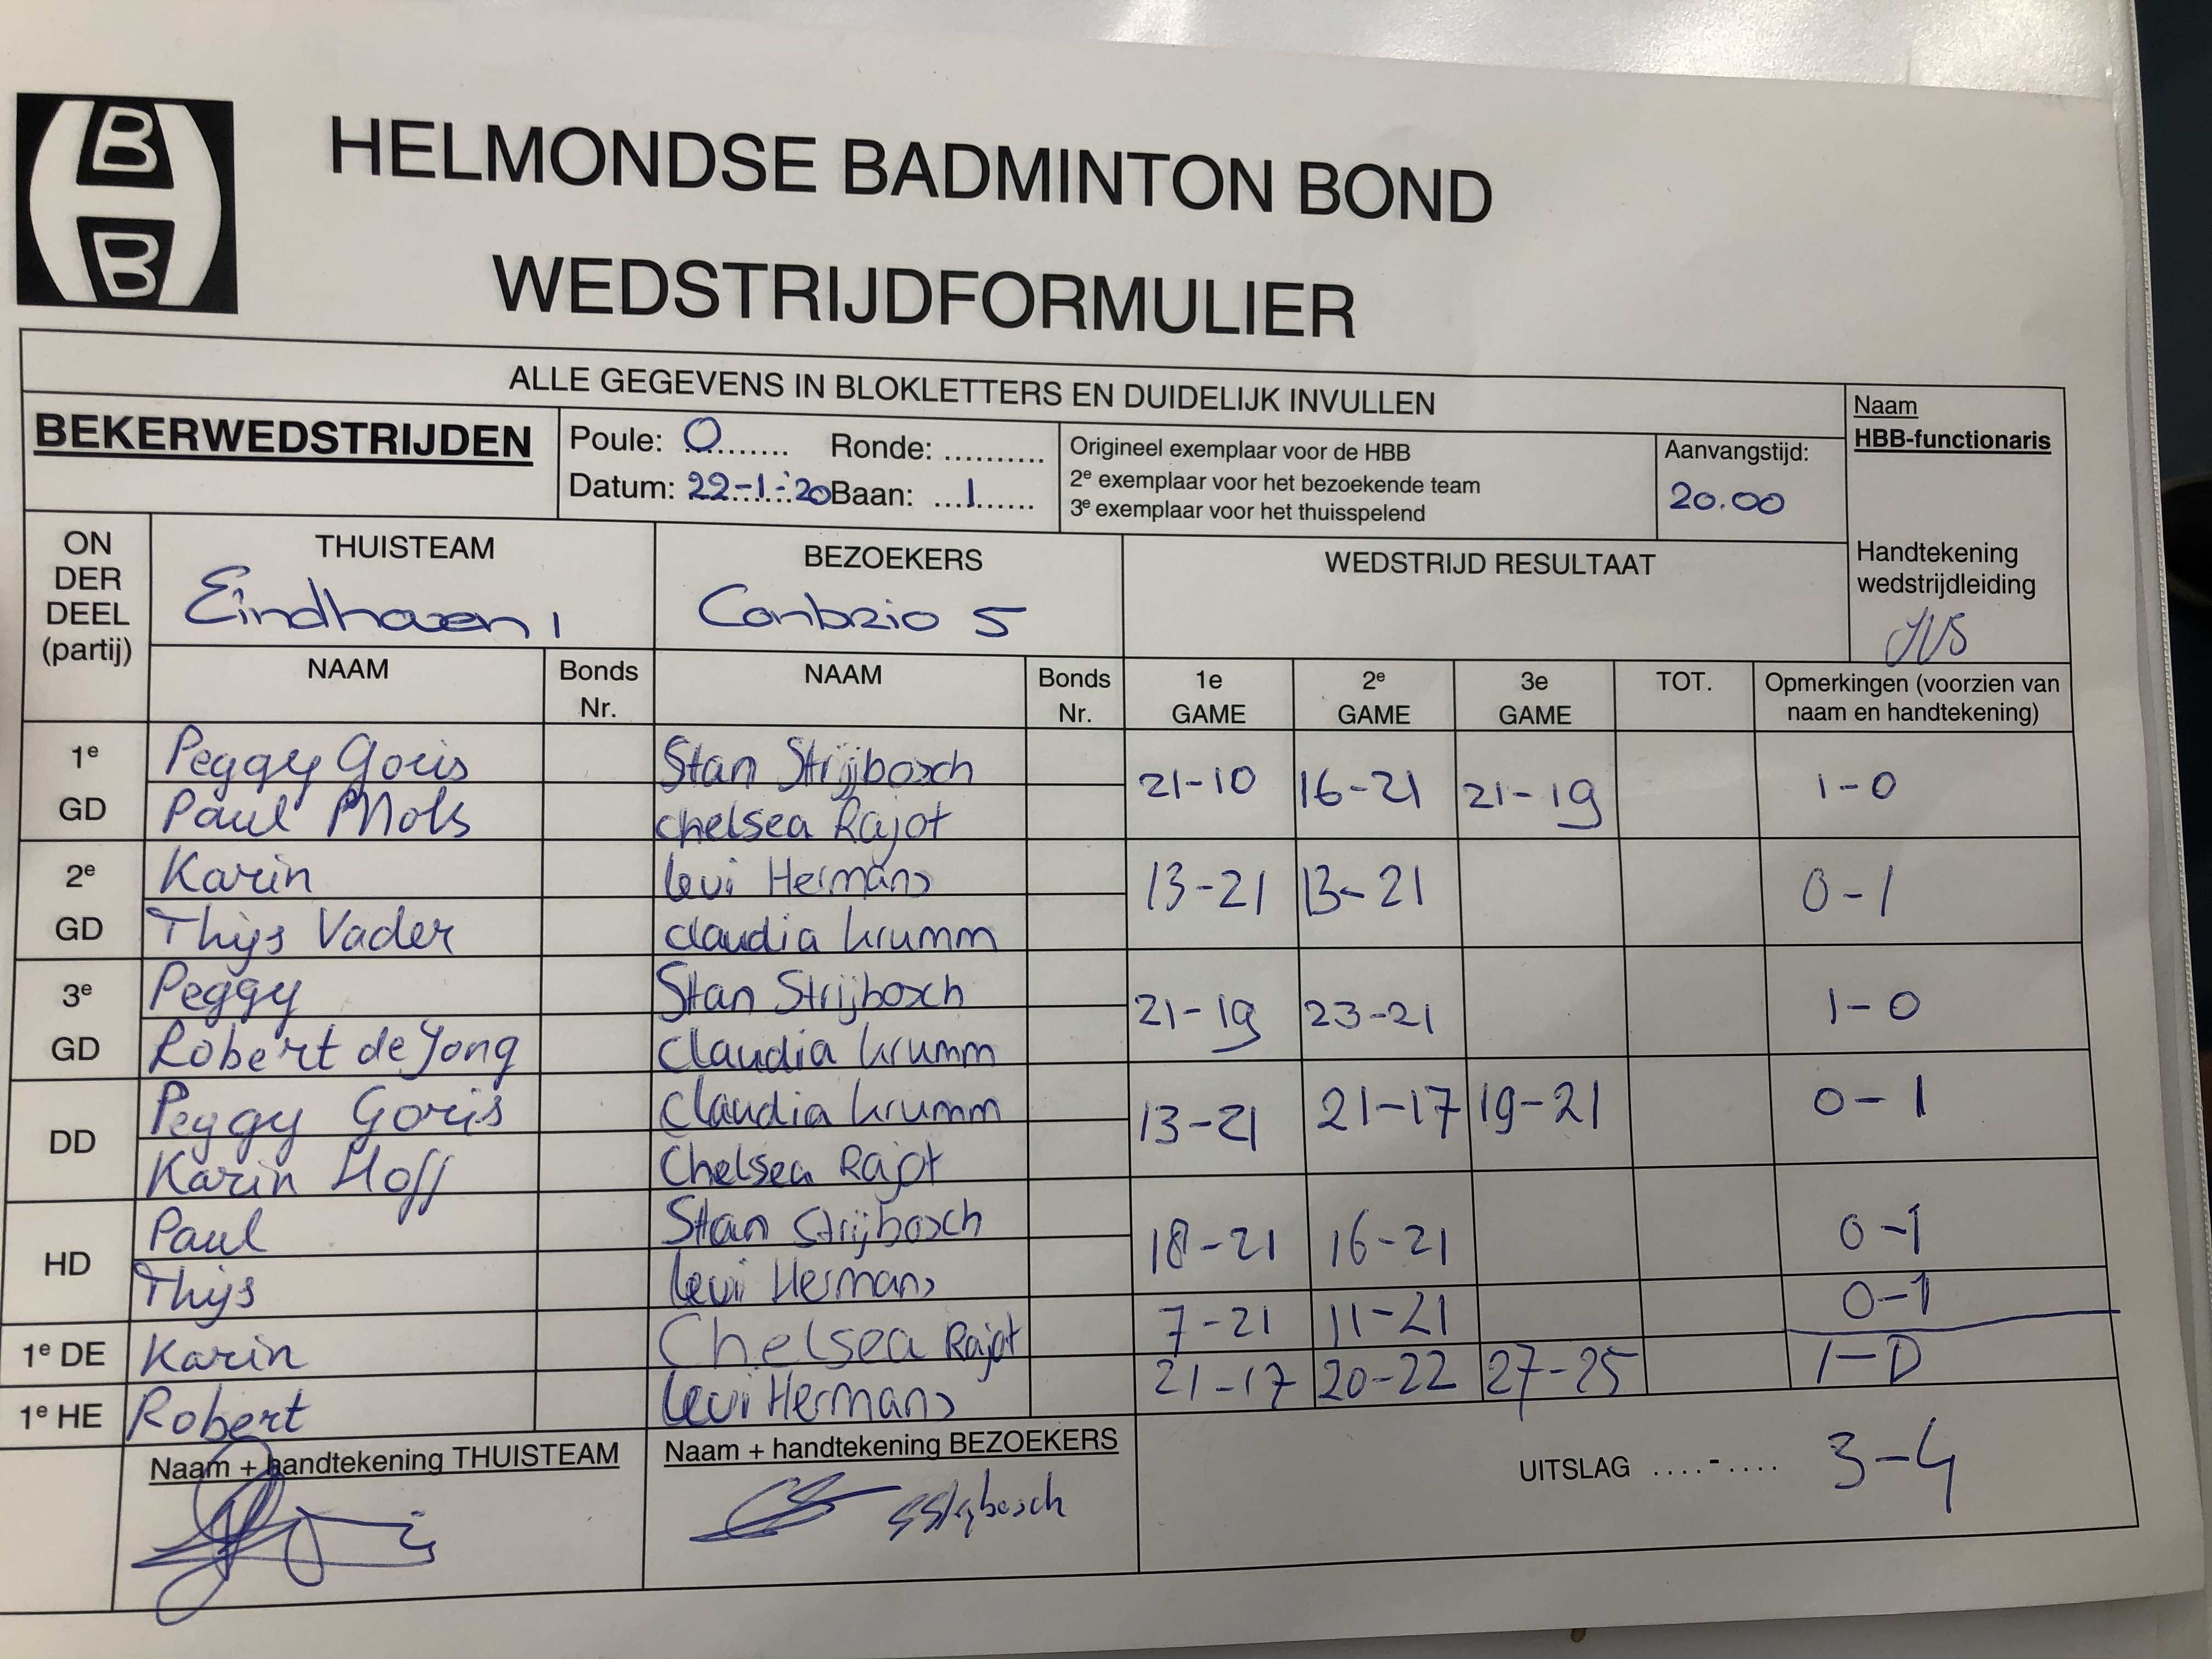 B
B
HELMONDSE BADMINTON BOND
WEDSTRIJDFORMULIER
ALLE GEGEVENS IN BLOKLETTERS EN DUIDELIJK INVULLEN
Naam
HBB-functionaris
BEKERWEDSTRIJDEN
Poule: O........ Ronde: ..........
Datum: 22-1-'20 Baan: ...1......
Origineel exemplaar voor de HBB
2e exemplaar voor het bezoekende team
3e exemplaar voor het thuisspelend
Aanvangstijd:
20.00
Handtekening
wedstrijdleiding
JVS
ON
DER
DEEL
(partij)
THUISTEAM
Eindhoven 1
BEZOEKERS
Conbrio 5
WEDSTRIJD RESULTAAT
NAAM Bonds Nr. NAAM Bonds Nr. 1e GAME 2e GAME 3e GAME TOT. Opmerkingen (voorzien van naam en handtekening)
1e GD
Peggy Goris Stan Strijbosch
Paul Mols chelsea Rajot
21-10 16-21 21-19 1-0
2e GD
Karin levi Hermans
Thijs Vader claudia krumm
13-21 13-21 0-1
3e GD
Peggy Stan Strijbosch
Robert de Jong Claudia krumm
21-19 23-21 1-0
DD
Peggy Goris Claudia krumm
Karin Hoff Chelsea Rajot
13-21 21-17 19-21 0-1
HD
Paul Stan Strijbosch
Thijs levi Hermans
18-21 16-21 0-1
1e DE Karin Chelsea Rajot 7-21 11-21 0-1
1e HE Robert levi Hermans 21-17 20-22 27-25 1-0
Naam + handtekening THUISTEAM
Naam + handtekening BEZOEKERS
SStrijbosch
UITSLAG ....-.... 3-4